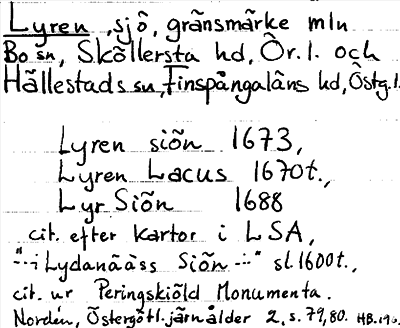 Lyren, sjö, gränsmärke mln
Bo sn, Sköllersta hd, Ör. l. och
Hällestads sn, Finspångaläns hd, Östg. l.
Lyren siön 1673,
Lyren Lacus 1670t.,
Lyr Siön 1688
cit. efter kartor i LSA,
"-·- i Lydanääss Siön -·-" sl. 1600t.,
cit. ur Peringskiöld Monumenta.
Nordén, Östergötl. järnålder 2, s. 79, 80. HB.